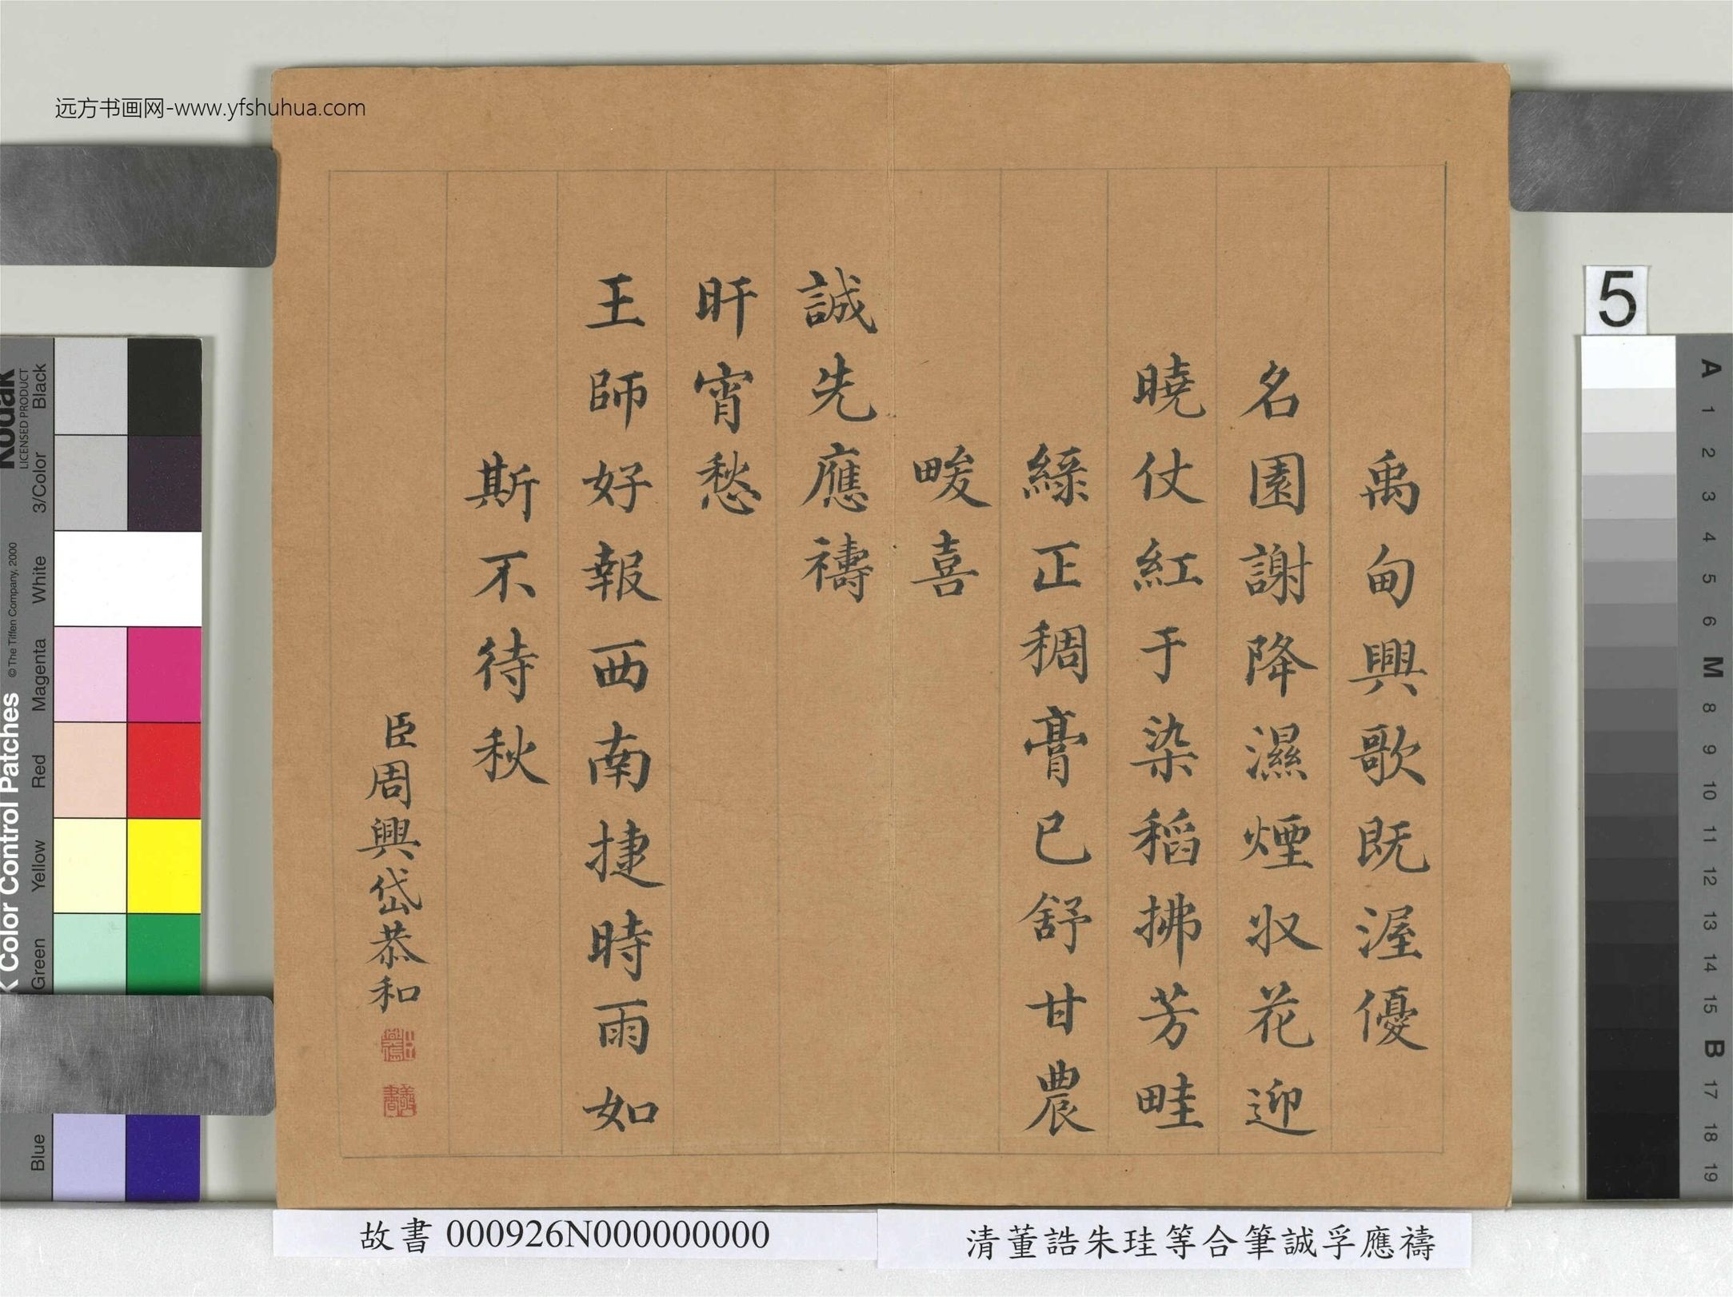 远方书画网-www.yfshuhua.com
禹甸興歌既渥優
名園謝降濕煙収花迎
曉仗紅于染稻拂芳畦
綠正稠膏已舒甘農
畯喜
誠先應禱
旰宵愁
王師好報西南捷時雨如
斯不待秋
臣周興岱恭和
故書 000926N000000000
清董誥朱珪等合筆誠孚應禱
Kodak
LICENSED PRODUCT
Color Control Patches
© The Tiffen Company, 2000
Black
3/Color
White
Magenta
Red
Yellow
Green
Blue
5
A
1
2
3
4
5
6
M
8
9
10
11
12
13
14
15
B
17
18
19